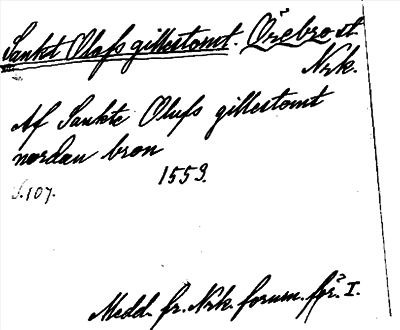 Sankt Olafs gillestomt. Örebro st.
Nrk.
Af Sankte Olufs gillestomt
nordan bron
1559.
S. 107.
Medd. fr. Nrk. fornm. för. I.